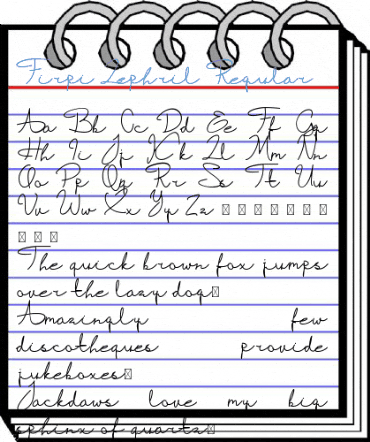 Firpi Lephril Regular
Aa Bb Cc Dd Ee Ff Gg
Hh Ii Jj Kk Ll Mm Nn
Oo Pp Qq Rr Ss Tt Uu
Vv Ww Xx Yy Zz
The quick brown fox jumps
over the lazy dog
Amazingly few
discotheques provide
jukeboxes
Jackdaws love my big
sphinx of quartz